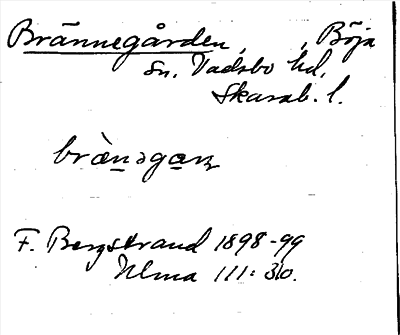 Brännegården, , Böja
Sn. Vadsbo hd.
Skarab. l.
bræ̀n̠əga̠ɳ
F. Bergstrand 1898-99
Ulma 111:30.